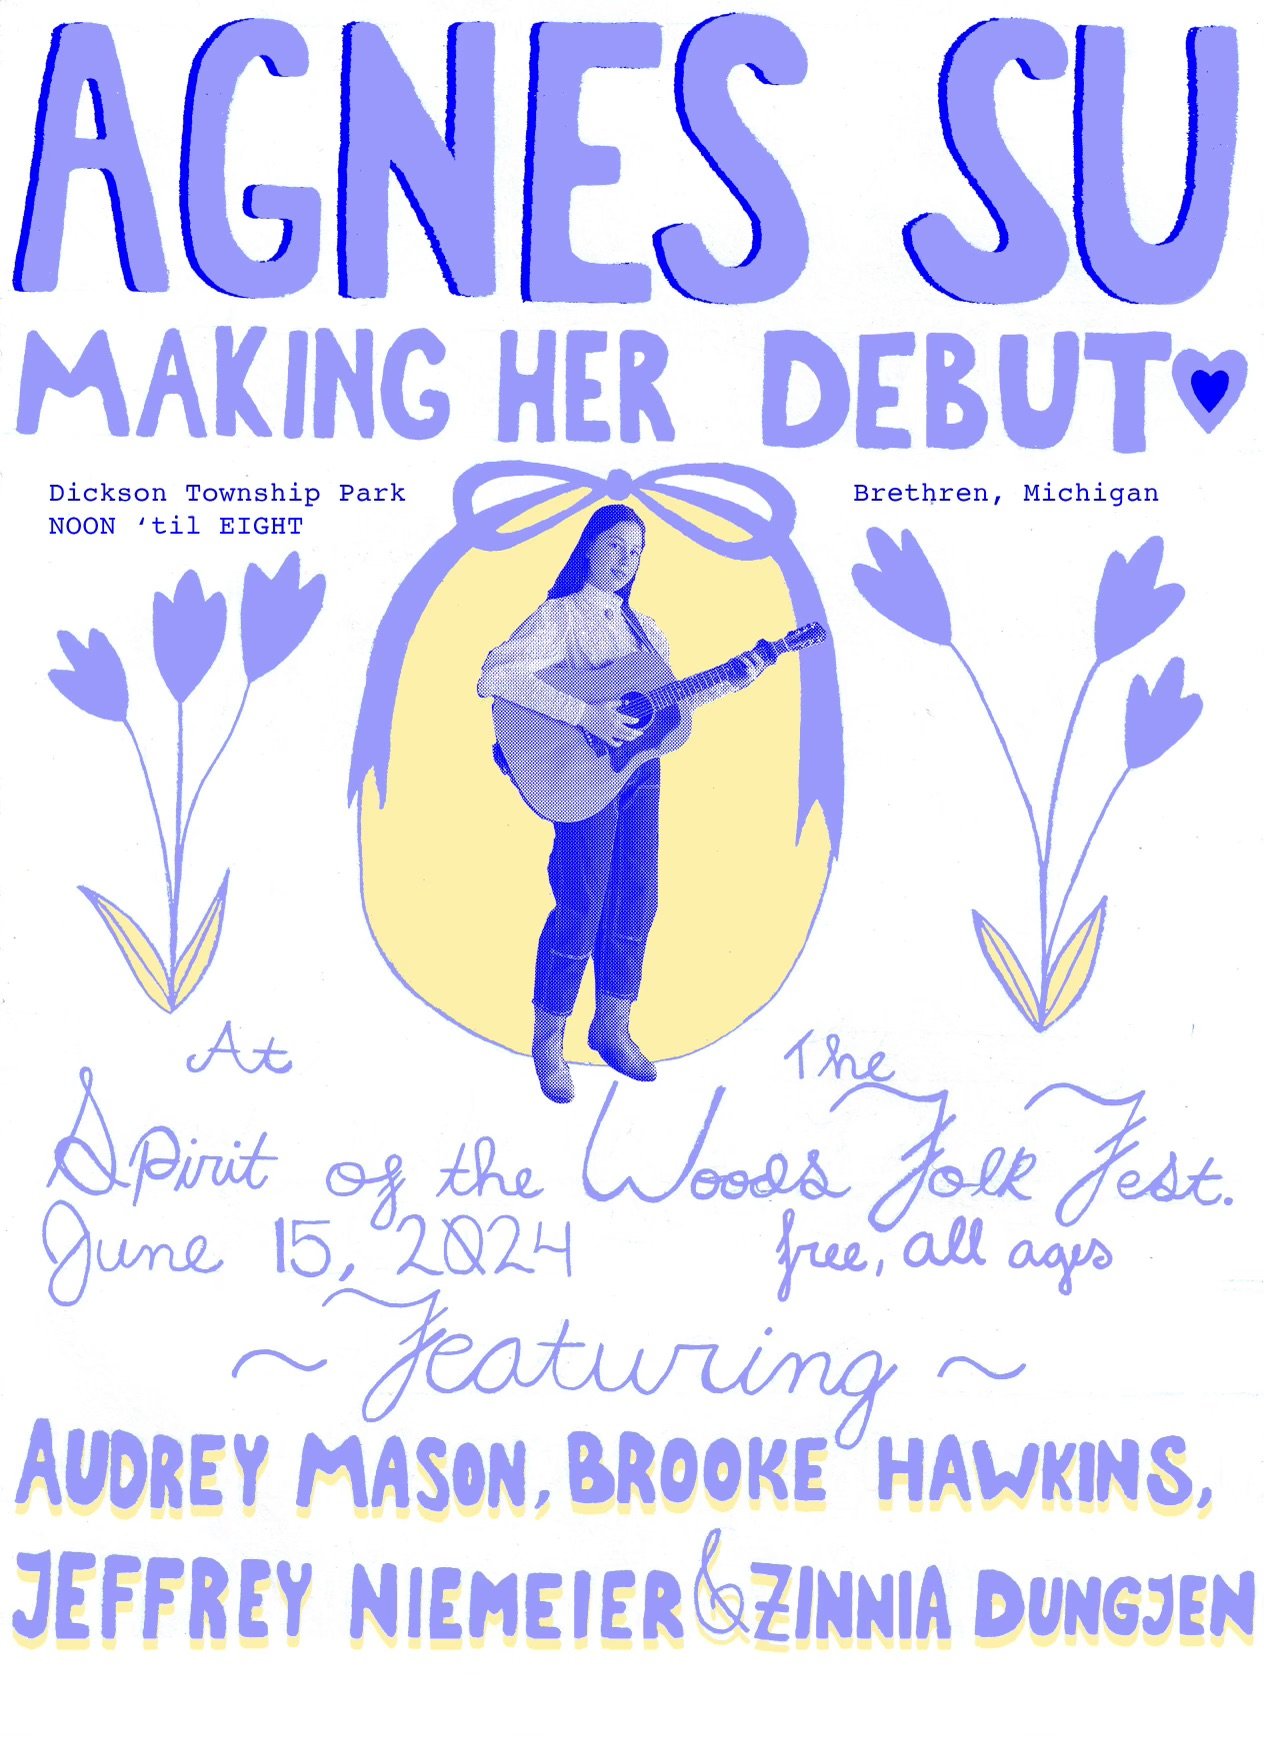 AGNES SU
MAKING HER DEBUT
Dickson Township Park
NOON ‘til EIGHT
Brethren, Michigan
At The
Spirit of the Woods Folk Fest.
June 15, 2024 free, all ages
~ Featuring ~
AUDREY MASON, BROOKE HAWKINS,
JEFFREY NIEMEIER & ZINNIA DUNGJEN